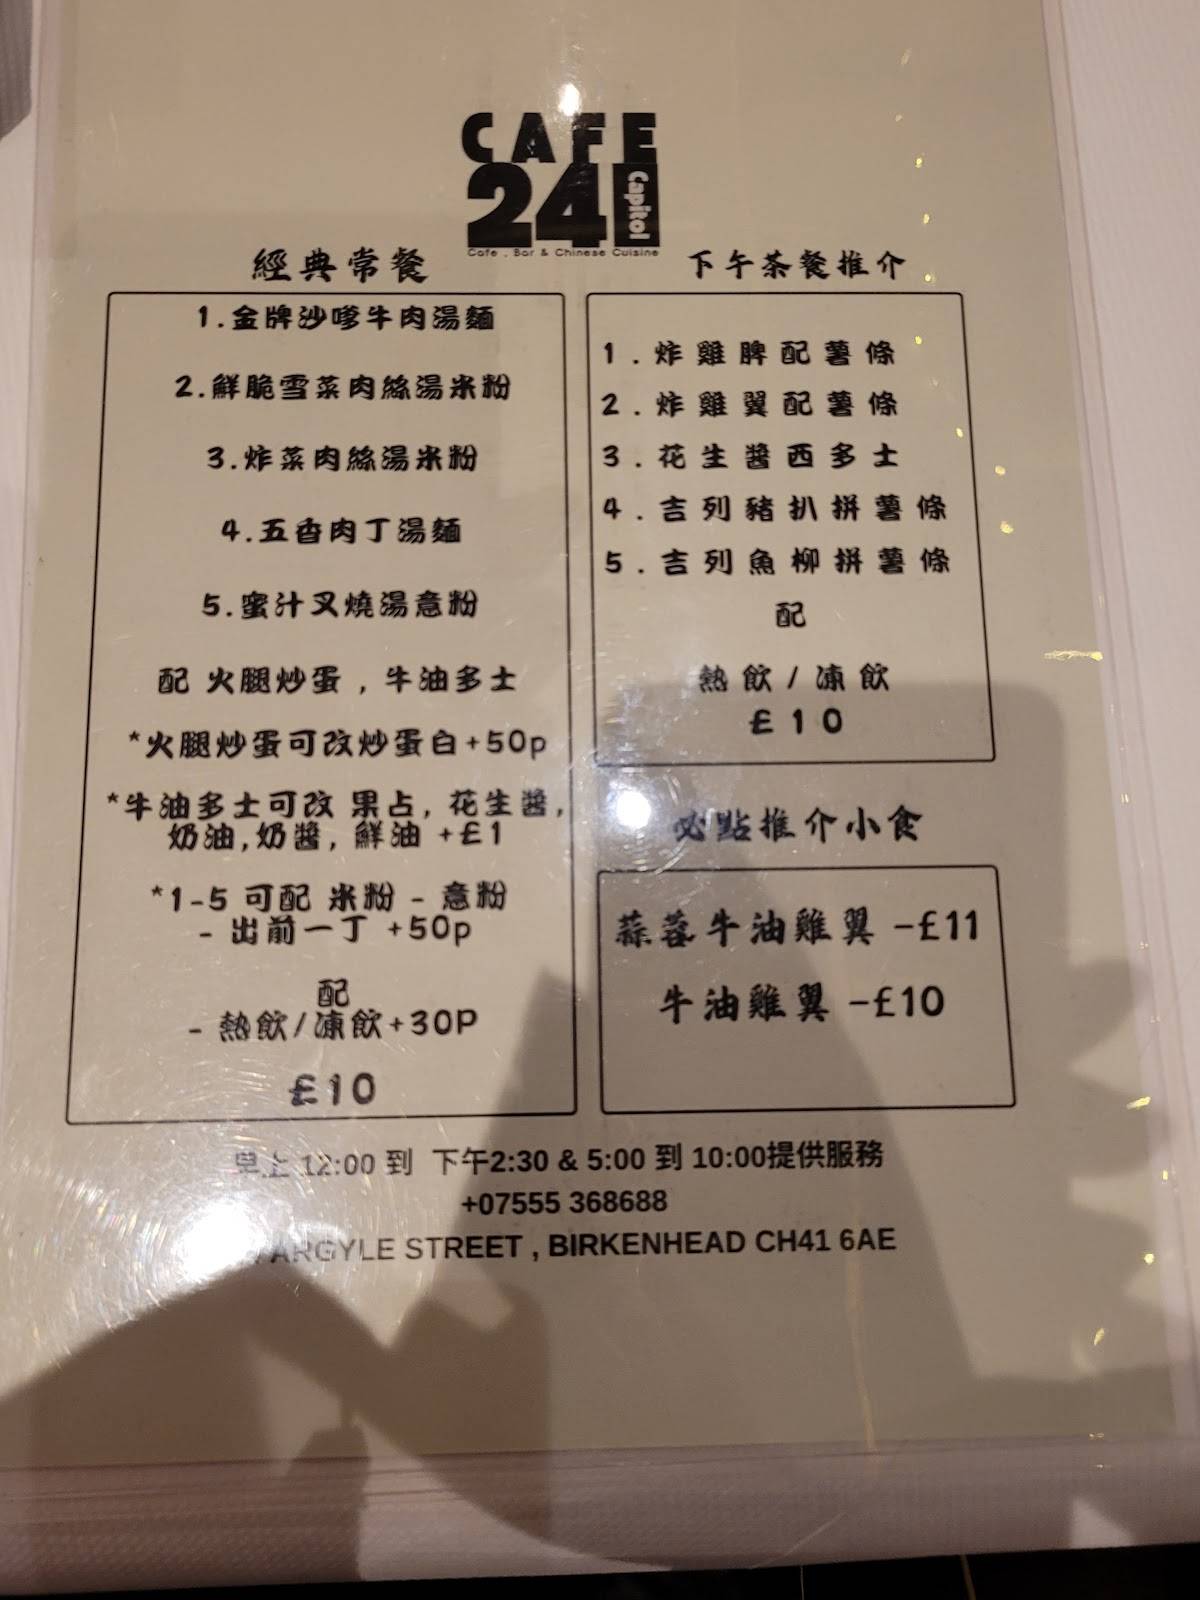 CAFE
24
Capitol
Cafe , Bar & Chinese Cuisine
經典常餐
1.金牌沙嗲牛肉湯麵
2.鮮脆雪菜肉絲湯米粉
3.炸菜肉絲湯米粉
4.五香肉丁湯麵
5.蜜汁叉燒湯意粉
配 火腿炒蛋 , 牛油多士
*火腿炒蛋可改炒蛋白+50p
*牛油多士可改 果占, 花生醬,
奶油,奶醬, 鮮油 +£1
*1-5 可配 米粉 - 意粉
- 出前一丁 +50p
配
- 熱飲/凍飲+30P
£10
下午茶餐推介
1.炸雞脾配薯條
2.炸雞翼配薯條
3.花生醬西多士
4.吉列豬扒拼薯條
5.吉列魚柳拼薯條
配
熱飲/凍飲
£10
必點推介小食
蒜蓉牛油雞翼 -£11
牛油雞翼 -£10
早上 12:00 到 下午2:30 & 5:00 到 10:00提供服務
+07555 368688
ARGYLE STREET , BIRKENHEAD CH41 6AE